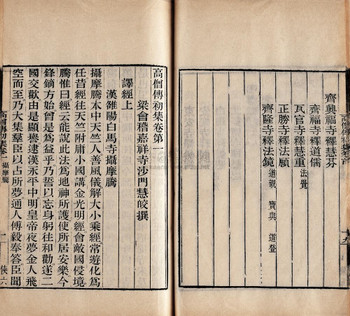 齊興福寺釋慧芬
齊福寺釋道儒
瓦官寺釋慧重 法覺
正勝寺釋法願
齊隆寺釋法鏡 道親 寶興 道登
高僧傳初集卷第一
梁會稽嘉祥寺沙門慧皎撰
譯經上
漢雒陽白馬寺攝摩騰
攝摩騰本中天竺人善風儀解大小乘經常遊化為
任昔經往天竺附庸小國講金光明經會敵國侵境
騰惟曰經云能說此法為地神所護使所居安樂今
鋒鏑方始曾是為益乎乃誓以忘身躬往和勸遂二
國交歡由是顯譽逮漢永平中明皇帝夜夢金人飛
空而至乃大集羣臣以占所夢通人傅毅奉答臣聞